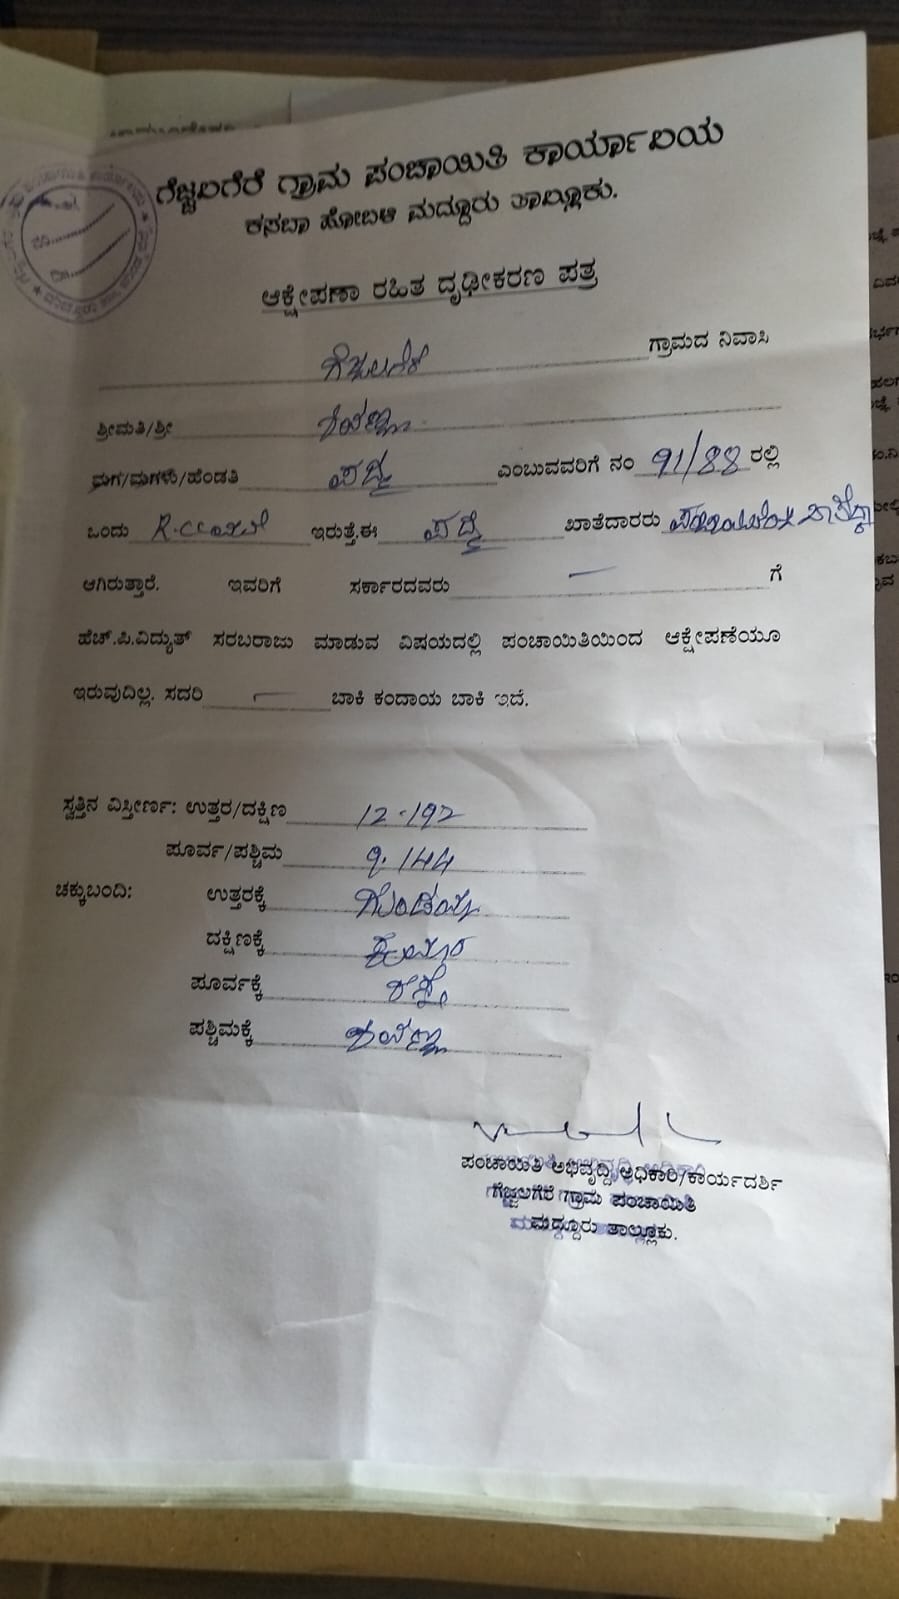 ಗೆಜ್ಜಲಗೆರೆ ಗ್ರಾಮ ಪಂಚಾಯಿತಿ ಕಾರ್ಯಾಲಯ
ಕಸಬಾ ಹೋಬಳಿ ಮದ್ದೂರು ತಾಲ್ಲೂಕು.
ಆಕ್ಷೇಪಣಾ ರಹಿತ ದೃಢೀಕರಣ ಪತ್ರ
ಗೆಜ್ಜಲಗೆರೆ ಗ್ರಾಮದ ನಿವಾಸಿ
ಶ್ರೀಮತಿ/ಶ್ರೀ
ಮಗ/ಮಗಳು/ಹೆಂಡತಿ ಪದ್ಮ ಎಂಬುವವರಿಗೆ ನಂ 91/88 ರಲ್ಲಿ
ಒಂದು ಇರುತ್ತೆ.ಈ ಖಾತೆದಾರರು
ಆಗಿರುತ್ತಾರೆ. ಇವರಿಗೆ ಸರ್ಕಾರದವರು — ಗೆ
ಹೆಚ್.ಪಿ.ವಿದ್ಯುತ್ ಸರಬರಾಜು ಮಾಡುವ ವಿಷಯದಲ್ಲಿ ಪಂಚಾಯಿತಿಯಿಂದ ಆಕ್ಷೇಪಣೆಯೂ
ಇರುವುದಿಲ್ಲ. ಸದರಿ — ಬಾಕಿ ಕಂದಾಯ ಬಾಕಿ ಇದೆ.
ಸ್ವತ್ತಿನ ವಿಸ್ತೀರ್ಣ: ಉತ್ತರ/ದಕ್ಷಿಣ 12.192
ಪೂರ್ವ/ಪಶ್ಚಿಮ 9.144
ಚಕ್ಕುಬಂದಿ: ಉತ್ತರಕ್ಕೆ
ದಕ್ಷಿಣಕ್ಕೆ ಕುಮಾರ
ಪೂರ್ವಕ್ಕೆ ರಸ್ತೆ
ಪಶ್ಚಿಮಕ್ಕೆ
ಪಂಚಾಯಿತಿ ಅಭಿವೃದ್ಧಿ ಅಧಿಕಾರಿ/ಕಾರ್ಯದರ್ಶಿ
ಗೆಜ್ಜಲಗೆರೆ ಗ್ರಾಮ ಪಂಚಾಯಿತಿ
ಮದ್ದೂರು ತಾಲ್ಲೂಕು.